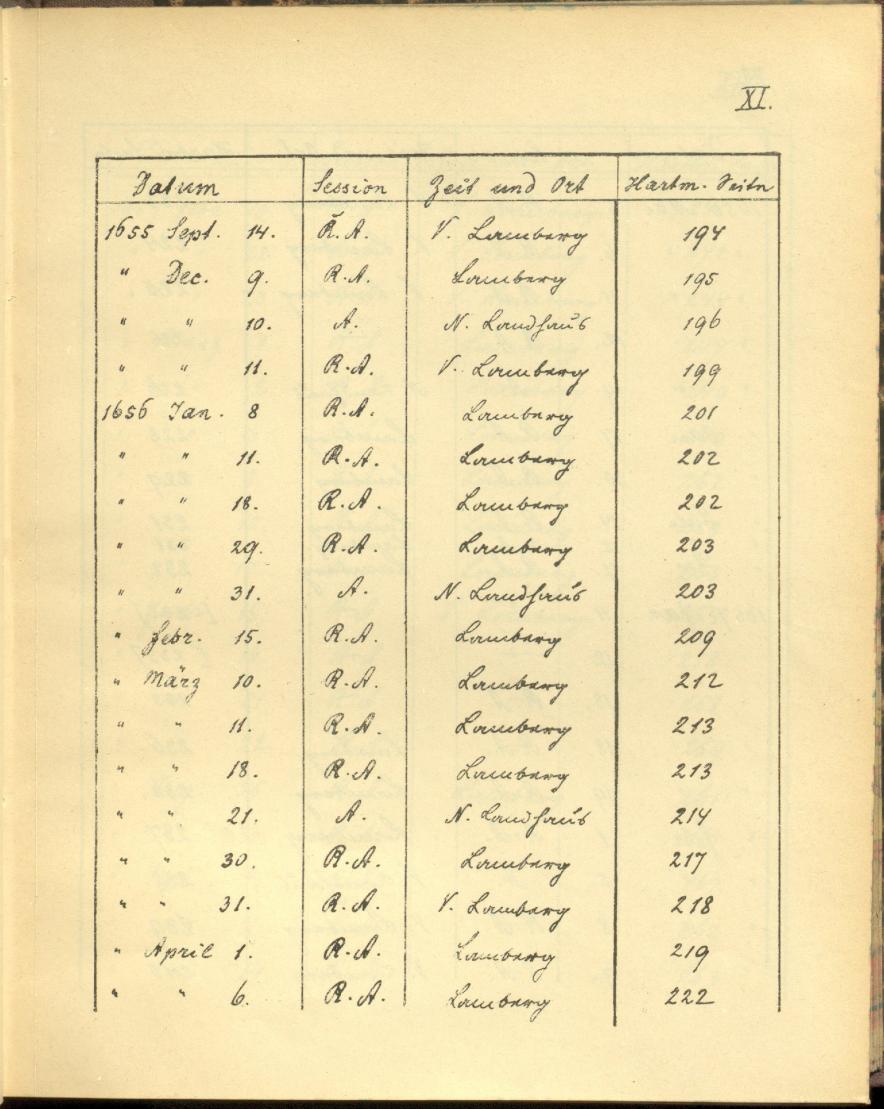 XI.
Datum Session Zeit und Ort Hartm. Seite
1655 Sept. 14. R.A. V. Lamberg 194
" Dec. 9. R.A. Lamberg 195
" " 10. A. N. Landhaus 196
" " 11. R.A. V. Lamberg 199
1656 Jan. 8 R.A. Lamberg 201
" " 11. R.A. Lamberg 202
" " 18. R.A. Lamberg 202
" " 29. R.A. Lamberg 203
" " 31. A. N. Landhaus 203
" Febr. 15. R.A. Lamberg 209
" März 10. R.A. Lamberg 212
" " 11. R.A. Lamberg 213
" " 18. R.A. Lamberg 213
" " 21. A. N. Landhaus 214
" " 30. R.A. Lamberg 217
" " 31. R.A. V. Lamberg 218
" April 1. R.A. Lamberg 219
" " 6. R.A. Lamberg 222